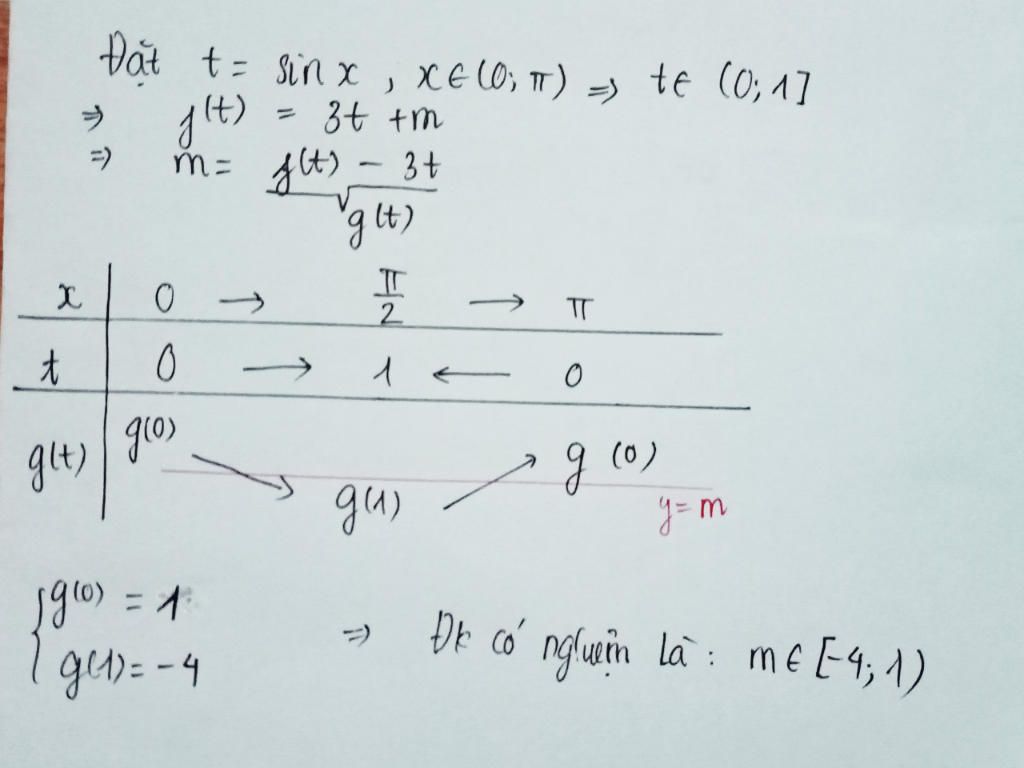 Đặt t = sin x , x ∈ (0; π) => t ∈ (0; 1]
=> f(t) = 3t + m
=> m = f(t) - 3t
g(t)
x 0 → π/2 → π
t 0 → 1 ← 0
g(t) g(0) ↘ g(1) ↗ g(0)
y = m
{ g(0) = 1
g(1) = -4
=> Đk có nghiệm là: m ∈ [-4; 1)